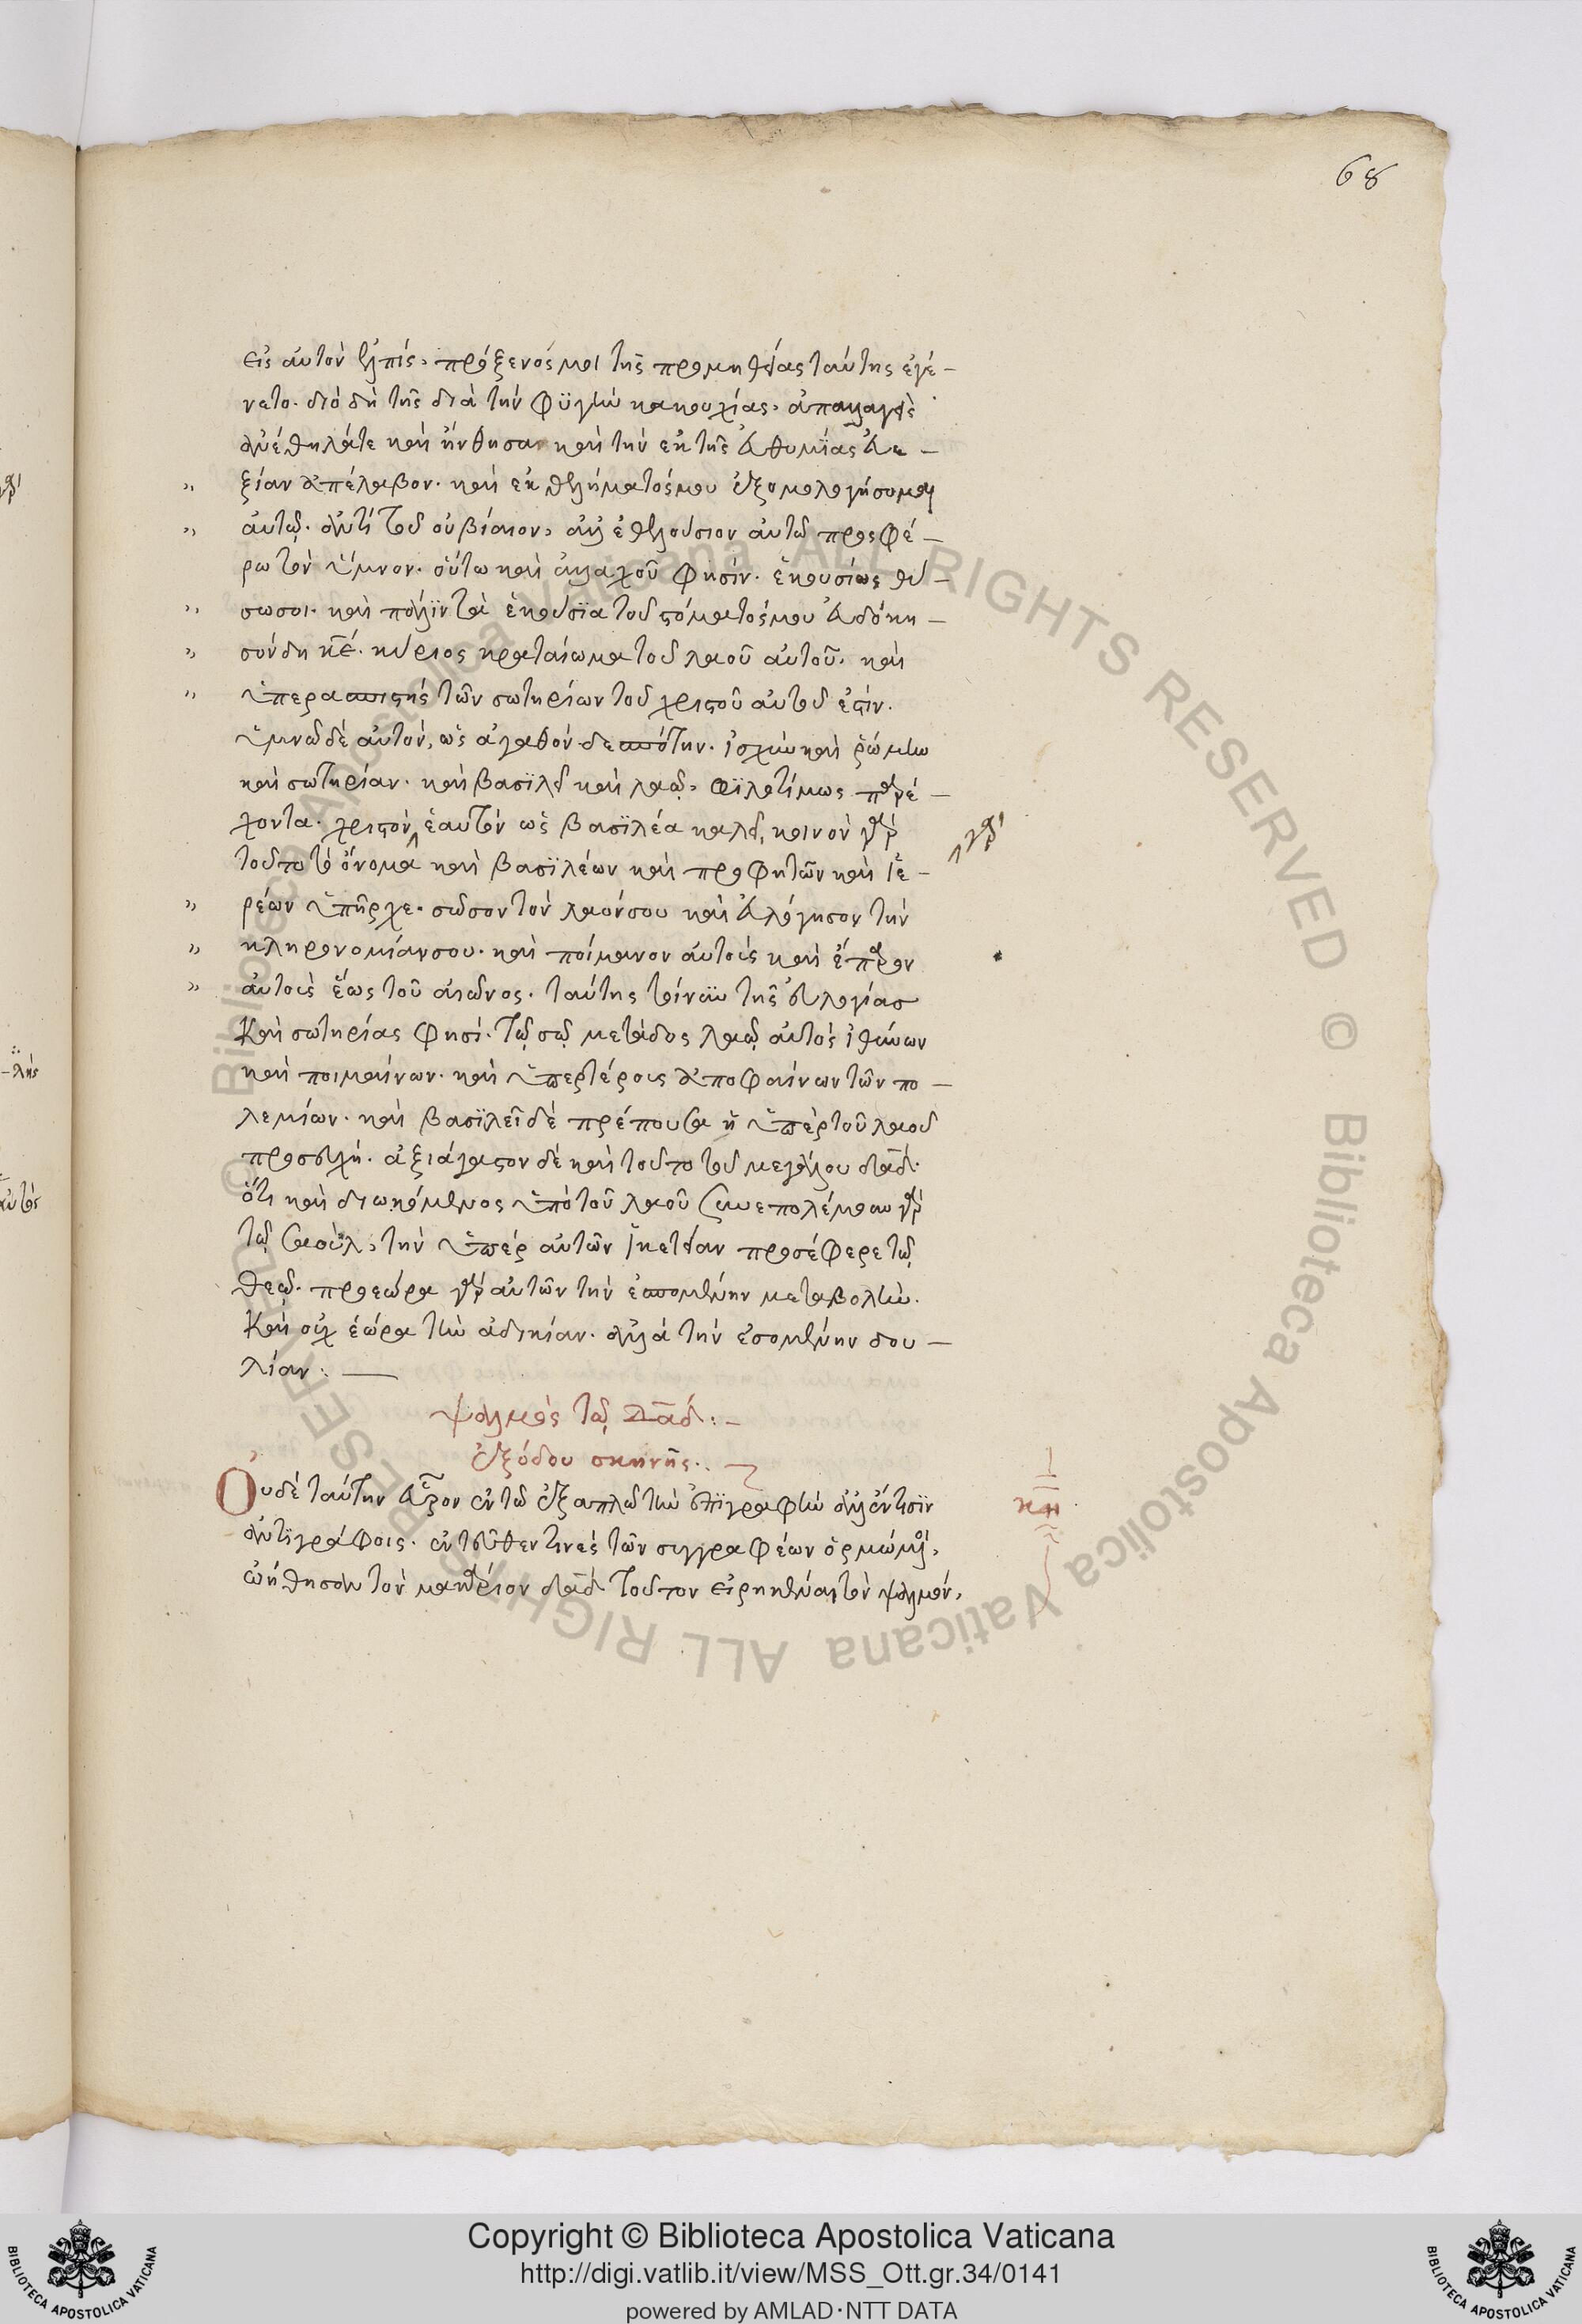 68
εἰς αὐτὸν ἐλπίς, πρόξενός μοι τῆς προμηθείας ταύτης ἐγέ-
νετο. διὸ δὴ τῆς διὰ τὴν φυγὴν κακουχίας, ἀπαλλαγεὶς
ἀνέθηλά τε καὶ ἤνθησα καὶ τὴν ἐκ τῆς εὐθυμίας εὐε-
" ξίαν ἀπέλαβον. καὶ ἐκ θελήματός μου ἐξομολογήσομαι
" αὐτῷ. ἀντὶ τοῦ οὐ βίαιον, ἀλλ' ἐθελούσιον αὐτῷ προσφέ-
ρω τὸν ὕμνον. οὕτω καὶ ἀλλαχοῦ φησίν. ἑκουσίως θύ-
" σω σοι. καὶ πάλιν τὰ ἑκούσια τοῦ στόματός μου εὐδόκη-
" σον δὴ κε. κύριος κραταίωμα τοῦ λαοῦ αὐτοῦ. καὶ
" ὑπερασπιστὴς τῶν σωτηρίων τοῦ χριστοῦ αὐτοῦ ἐστίν.
ὑμνῶ δὲ αὐτόν, ὡς ἀγαθὸν δεσπότην. ἰσχὺν καὶ ῥώμην
καὶ σωτηρίαν. καὶ βασιλεῖ καὶ λαῷ, φιλοτίμως παρέ-
χοντα. χριστὸν ἑαυτὸν ὡς βασιλέα καλεῖ, κοινὸν γὰρ
γὰρ
τοῦτο τὸ ὄνομα καὶ βασιλέων καὶ προφητῶν καὶ ἱε-
" ρέων ὑπῆρχε. σῶσον τὸν λαόν σου καὶ εὐλόγησον τὴν
" κληρονομίαν σου. καὶ ποίμανον αὐτοὺς καὶ ἔπαρον
" αὐτοὺς ἕως τοῦ αἰῶνος. ταύτης τοίνυν τῆς εὐλογίας
καὶ σωτηρίας φησί. τῷ σῷ μετάδος λαῷ αὐτὸς ἰθύνων
καὶ ποιμαίνων. καὶ ὑπερτέρους ἀποφαίνων τῶν πο-
λεμίων. καὶ βασιλεῖ δὲ πρέπουσα ἡ ὑπὲρ τοῦ λαοῦ
προσευχή. ἀξιάγαστον δὲ καὶ τοῦτο τοῦ μεγάλου δαδ.
ὅτι καὶ διωκόμενος ὑπὸ τοῦ λαοῦ συνεπολέμουν γὰρ
τῷ σαούλ, τὴν ὑπὲρ αὐτῶν ἱκετείαν προσέφερε τῷ
θεῷ. προεώρα γὰρ αὐτῶν τὴν ἐσομένην μεταβολήν.
καὶ οὐχ ἑώρα τὴν ἀδικίαν. ἀλλὰ τὴν ἐσομένην δου-
λίαν:
ψαλμὸς τῷ δαδ:-
ἐξόδου σκηνῆς:
Οὐδὲ ταύτην εὗρον ἐν τῷ ἑξαπλῷ τὴν ἐπιγραφὴν ἀλλ' ἔν τισιν
κη
ἀντιγράφοις. ἐντεῦθεν τινὲς τῶν συγγραφέων ὁρμώμενοι,
ᾠήθησαν τὸν μακάριον δαδ τοῦτον εἰρηκέναι τὸν ψαλμόν,
Copyright © Biblioteca Apostolica Vaticana
http://digi.vatlib.it/view/MSS_Ott.gr.34/0141
powered by AMLAD·NTT DATA